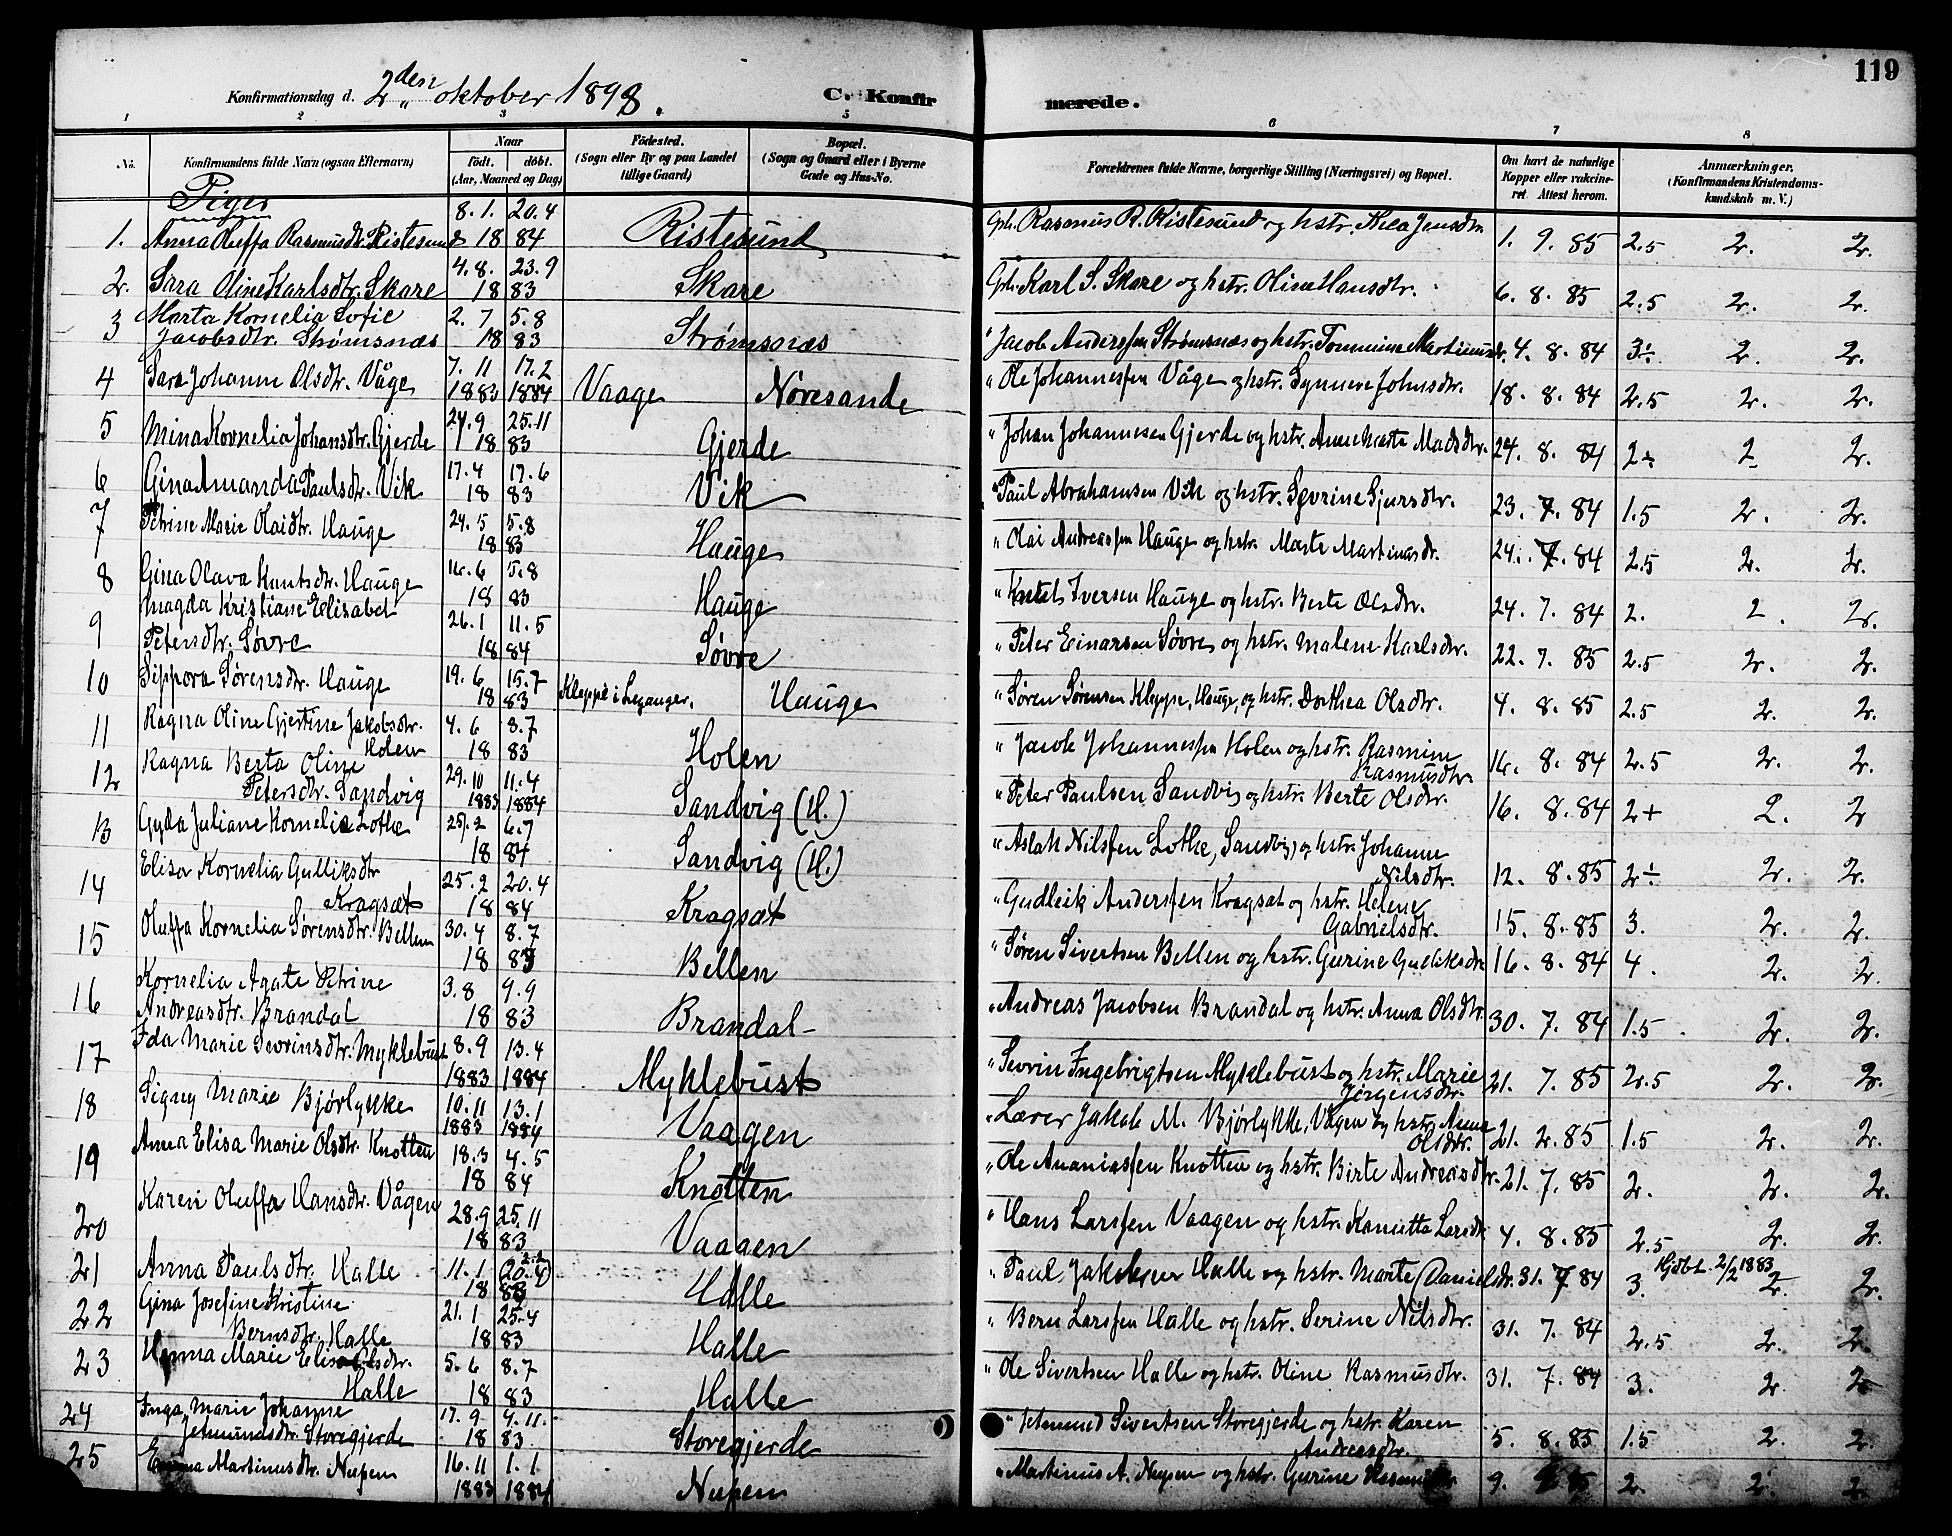 119
Konfirmationsdag d. 2den oktober 1898. C. Konfirmerede.
1 2 3 5 6 7 8
No. Konfirmandens fulde Navn (ogsaa Efternavn) Naar födt. döbt. (Aar, Maaned og Dag) Födested. (Sogn eller By og paa Landet tillige Gaard) Bopæl. (Sogn og Gaard eller i Byerne Gade og Hus-No. Forældrenes fulde Navne, borgerlige Stilling (Næringsvei) og Bopæl. Om havt de naturlige Kopper eller vakcineret. Attest herom. Anmærkninger. (Konfirmandens Kristendomskundskab m. V.)
Piger
1. Anna Oluffa Rasmusdtr. Ristesund 8.1. 20.4 1884 Ristesund Gbr. Rasmus R. Ristesund og hstr. Thea Jensdtr. 1. 9. 85 2.5 2. 2.
2. Sara Oline Karlsdtr. Skare 4.8. 23.9 1883 Skare Gbr. Karl S. Skare og hstr. Oline Hansdtr. 6. 8. 85 2.5 2. 2.
3 Marta Kornelia Sofie Jacobsdtr. Strømsnæs 2.7 5.8 1883 Strømsnæs " Jacob Anderssen Strømsnæs og hstr. Tommine Martinusdr. 4. 8. 84 3÷ 2. 2.
4 Sara Johanne Olsdtr. Våge 7.11 17.2 1883 1884 Vaage Nøresande " Ole Johannessen Våge og hstr. Synneve Johnsdtr. 18. 8. 84 2.5 2. 2.
5 Mina Kornelia Johansdtr. Gjerde 24.9 25.11 1883 Gjerde " Johan Johannesen Gjerde og hstr. Anne Marte Madsdtr. 24. 8. 84 2÷ 2 2.
6 Gina Amanda Paulsdtr. Vik 17.4 17.6 1883 Vik " Paul Abrahamsen Vik og hstr. Severine Sjursdtr. 23. 7. 84 1.5 2. 2.
7 Petrine Marie Olaidtr. Hauge 24.5 5.8 1883 Hauge " Olai Andreassen Hauge og hstr. Marte Martinusdr. 24. 7. 84 2.5 2. 2.
8 Gina Olava Knutsdtr. Hauge 16.6 5.8 1883 Hauge " Knut Iversen Hauge og hstr. Berte Olsdtr. 24. 7. 84 2. 2. 2.
9 Magda Kristiane Elisabet Petersdtr. Søvre 26.1 11.5 1884 Søvre " Peter Einarsen Søvre og hstr. Malene Karlsdtr. 22. 7. 85 2.5 2. 2.
10 Sippora Sørensdtr. Hauge 19.6 15.7 1883 Kleppe i Selganger. Hauge " Søren Sørensen Kleppe, Hauge, og hstr. Dorthea Olsdtr. 4. 8. 85 2.5 2. 2.
11 Ragna Oline Gjertine Jakobsdtr. Holen 4.6 8.7 1883 Holen " Jacob Johannessen Holen og hstr. Rasmine Rasmusdtr. 16. 8. 84 2.5 2. 2.
12 Ragna Berta Oline Petersdtr. Sandvig 29.10 11.4 1883 1884 Sandvig (H.) " Peter Paulsen Sandvig og hstr. Berte Olsdtr. 16. 8. 84 2+ 2. 2
13 Gyda Juliane Kornelia Lothe 25.2 6.7 1884 Sandvig (H.) " Aslak Nilssen Lothe, Sandvig, og hstr. Johanne Nilsdtr. 12. 8. 85 2÷ 2. 2.
14 Elisa Kornelia Gulliksdtr Kragsæt 25.2 20.4 1884 Kragsæt " Gudleik Anderssen Kragsæt og hstr. Helene Gabrielsdtr. 15. 8. 85 3. 2. 2.
15 Oluffa Kornelia Sørensdtr. Bellen 30.4 8.7 1883 Bellen " Søren Sivertsen Bellen og hstr. Gurine Gulliksdtr 16. 8. 84 4. 2. 2.
16 Kornelia Agate Petrine Andreasdtr. Brandal 3.8 9.9 1883 Brandal " Andreas Jacobsen Brandal og hstr. Anna Olsdtr. 30. 7. 84 1.5 2. 2.
17 Ida Marie Sevrinsdtr. Myklebust 8.9 13.4 1883 1884 Myklebust " Sevrin Ingebrigtsen Myklebust og hstr. Marie Jørgensdtr. 21. 7. 85 2.5 2. 2.
18 Signy Marie Bjørlykke 10.11 13.1 1883 1884 Vaagen " Lærer Jakob M. Bjørlykke, Vågen og hstr. Anne Olsdtr. 21. 2. 85 1.5 2. 2.
19 Anna Elisa Marie Olsdtr. Knotten 18.3 4.5 1884 Knotten " Ole Ananiassen Knotten og hstr. Birte Andreasdtr. 21. 7. 85 2. 2. 2.
20 Karen Oluffa Hansdtr. Vågen 28.9 25.11 1883 Vaagen " Hans Larssen Vaagen og hstr. Larsdtr 4. 8. 85 2.5 2. 2.
21 Anna Paulsdtr. Halle 11.1 (20.4) 1883 Halle " Paul Jakobsen Halle og hstr. Marte Danielsdr. 31. 7 84 3. Hjdbt. 2/2 1883 2. 2.
22 Gina Josefine Kristine Bernsdtr. Halle 21.1 25.4 1883 Halle " Bern Larssen Halle og hstr. Serine Nilsdtr. 31. 7. 84 2.5 2. 2.
23 Hanna Marie Elisa Olsdtr. Halle 5.6 8.7 1883 Halle " Ole Sivertsen Halle og hstr. Oline Rasmusdtr. 31. 7. 84 3. 2. 2
24 Inga Marie Johanne Jetmundsdtr. Storegjerde 17.9 4.11 1883 Storegjerde " Jetmund Sivertsen Storegjerde og hstr. Karen Andreasdtr. 5. 8. 85 1.5 2. 2.
25 Emma Martinusdtr. Nupen 16.11 1.1 1883 1884 Nupen " Martinus A. Nupen og hstr. Gurine 9. 85 2. 2. 2.